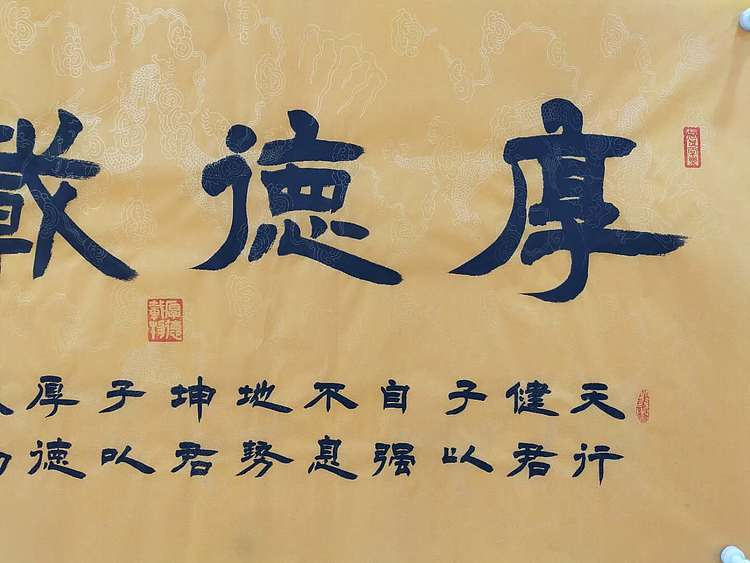 厚德載
天行
健君
子以
自强
不息
地势
坤君
子以
厚德
厚德
載物